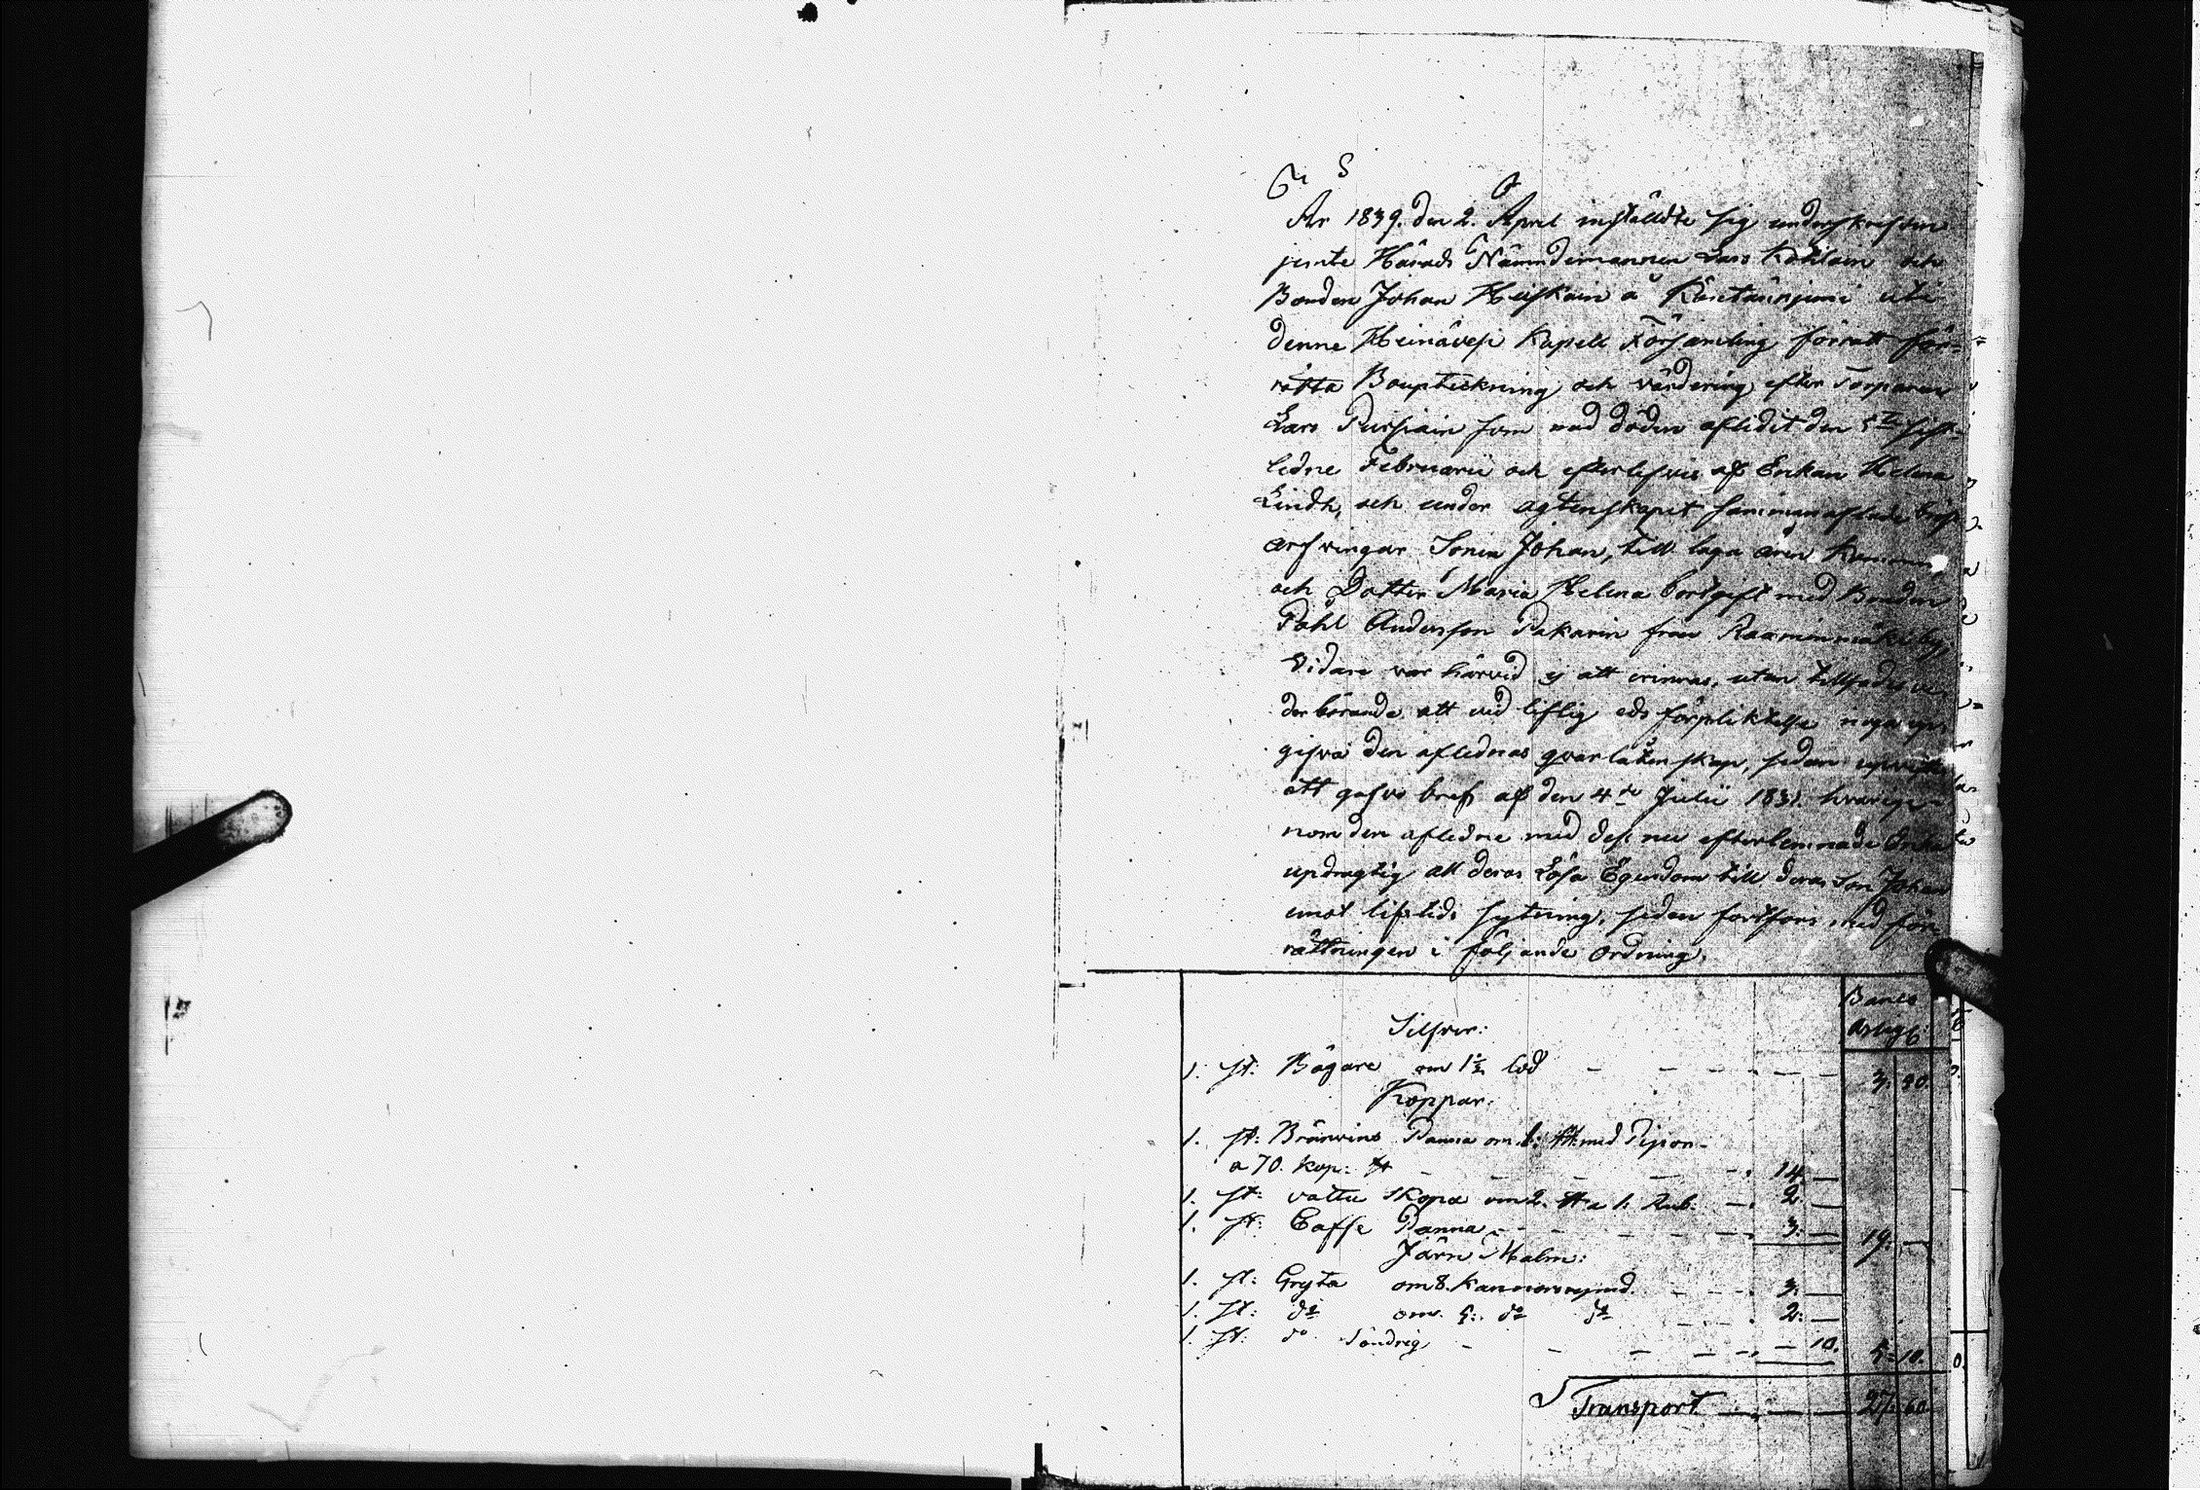 År 1839. den 2. April inställdte sig underskrefven
jemte Härads Nämndemannen Lars Kohlain och
Bonden Johan Heiskain å Rantasinjemi uti
denne Heinävesi Kapell Församling förrätt för=
rätta Bouptekning och värdering efter Torparen
Lars Pursiain som med döden aflidit den 5te sist=
ledne Februarii och efterlefvis af Enkan Helena
Lindh, och under ägtenskapet sammanaflade bröst
arfvingar Sonen Johan, till laga åren kommen,
och Dotter Maria Helena bortgift med Bonden
Påhl Andersson Pakarin från Raaminmäki by,
Vidare var härvid ej att erinras, utan tillsades ve
derbörande att vid liflig eds förpliktelse noga upp
gifva den aflednas qvarlåtenskap, sedan
ett gåfvo bref af den 4de Julii 1831. hvarige-
nom den afledne med dess nu efterlemnade Enka
updragtig all deras Lösa Egendom till deras Son Johan
emot lifstids sytning, sedan fortfors med för
rättningen i följande ordning.
Banco
Assign:
Silfver:
1. st: Bägare om 1½ lod 3: 50.
Koppar:
1. st: Bränvins Panna om ℔ med Pipor
a 70. kop: ℔ 14. —
1. st: vattu skopa om 2. ℔ a 1. Rub: 2. —
1. st: Caffe Panna 3: — 19: —
Järn Malm:
1. st: Gryta om 8. kannors rymd 3: —
1. st: do om 5: do do 2: —
1. st: do Söndrig — 10. 5: 10.
Transport 27: 60.